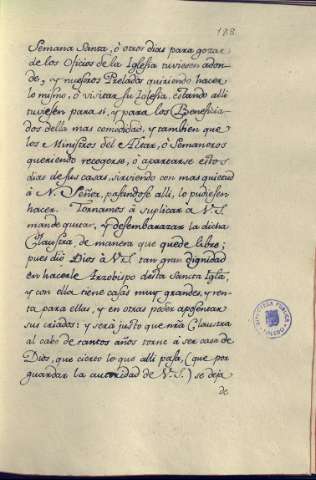 188
Semana Santa, ó otros dias para gozar
de los Oficios de la Iglesia tuviesen adon-
de, y nuestros Prelados quiriendo hacer
lo mismo, ó visitar su Iglesia, estando alli
tuviesen para si, y para los Beneficia-
dos della mas comodidad, y tambien que
los Ministros del Altar, ó Semaneros
queriendo recogerse, ó apartarse estos
dias de sus casas, sirviendo con mas quietud
á N. Señor, pasandose alli, lo pudiesen
hacer. Tornamos á suplicar a V. S.
mande quitar, y desembarazar la dicha
Claustra de manera que quede libre;
pues dió Dios á V. S. tan gran dignidad
en hacerle Arzobispo desta Sancta Iglã,
y con ella tiene casas muy grandes, y ren-
ta para ellas, y en otras poder aposentar
sus criados: y será justo que nrã Claustra
al cabo de tantos años torne á ser casa de
Dios, que cierto lo que alli pasa, (que por
guardar la autoridad de V. S.) se deja
de
BIBLIOTECA PUBLICA
TOLEDO